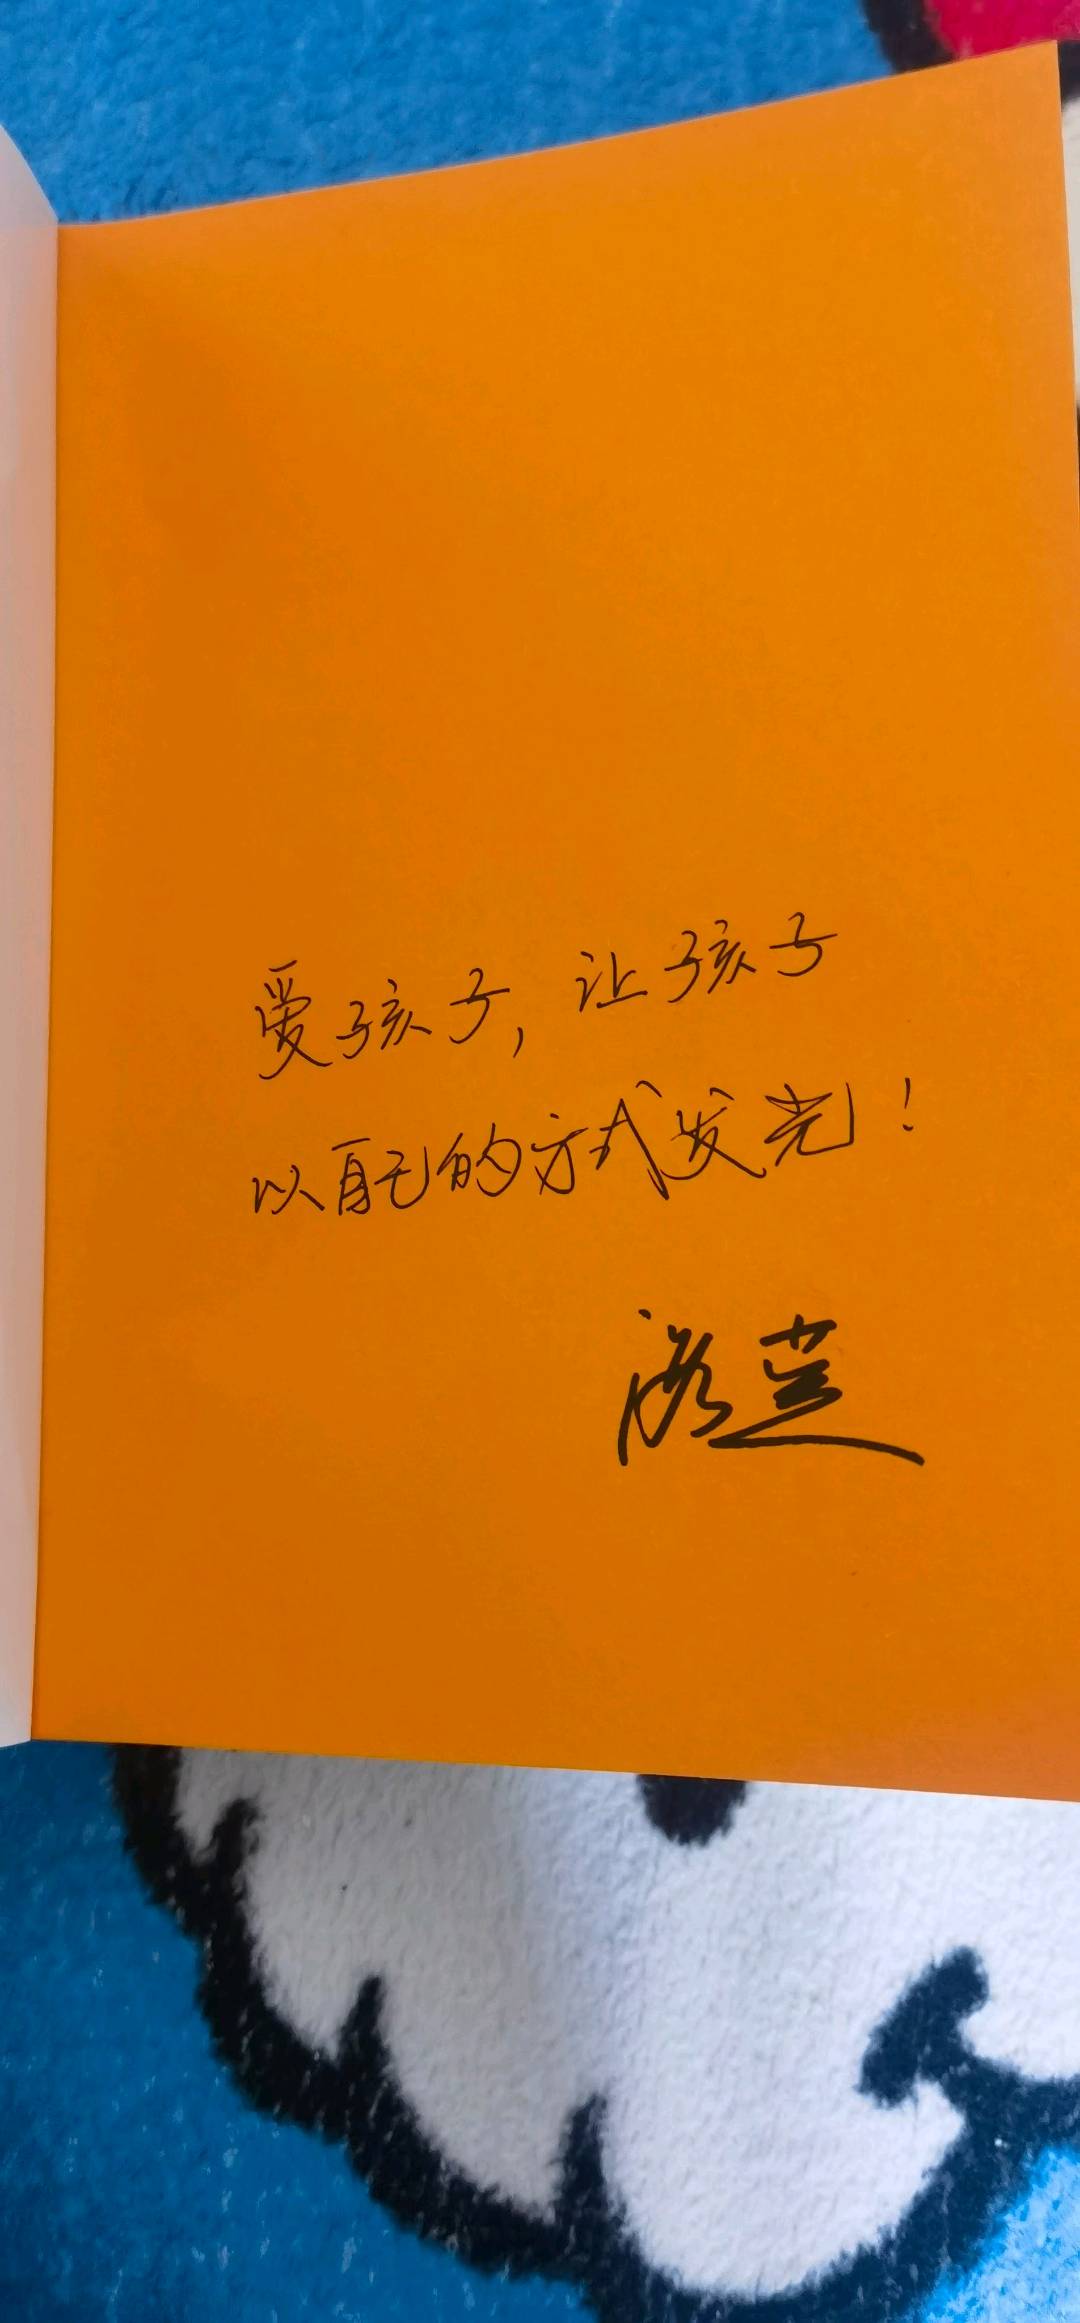 爱孩子，让孩子
以自己的方式发光！